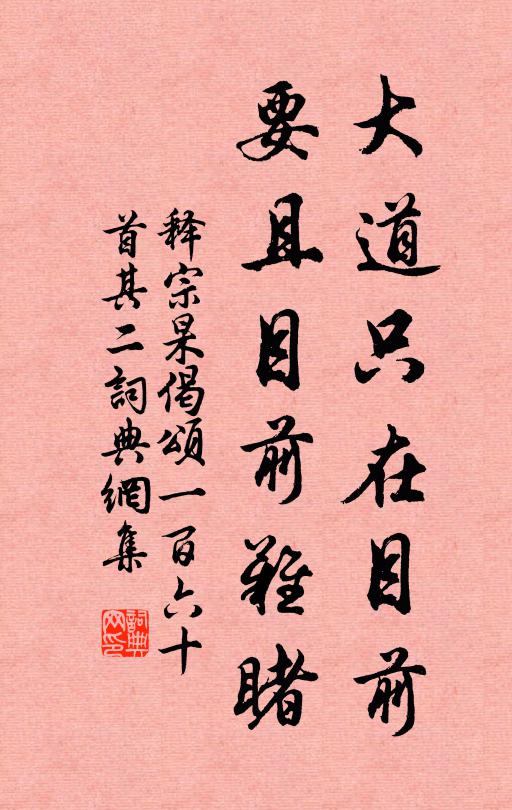 大道只在目前
要且目前難睹
释宗杲偈頌一百六十
首其二詞典網集
詞典网印